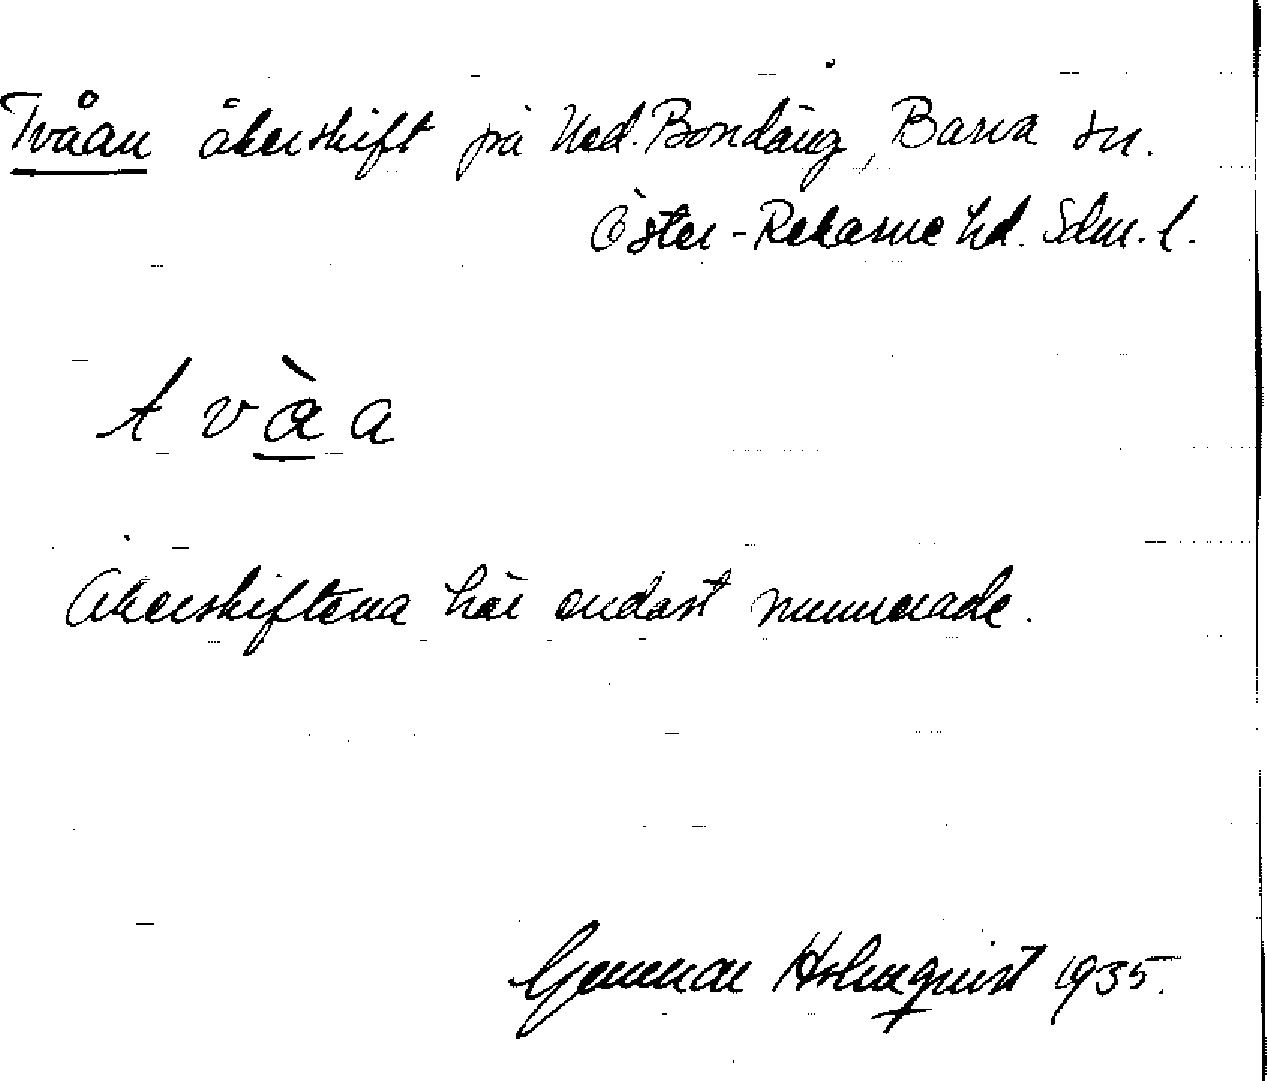 Tvåan åkerskift på Ned. Bondäng, Barva sn.
Öster-Rekarne hd. Sdm. l.
t v à a
Åkerskiftena här endast numrerade.
Gunnar Holmquist 1935.